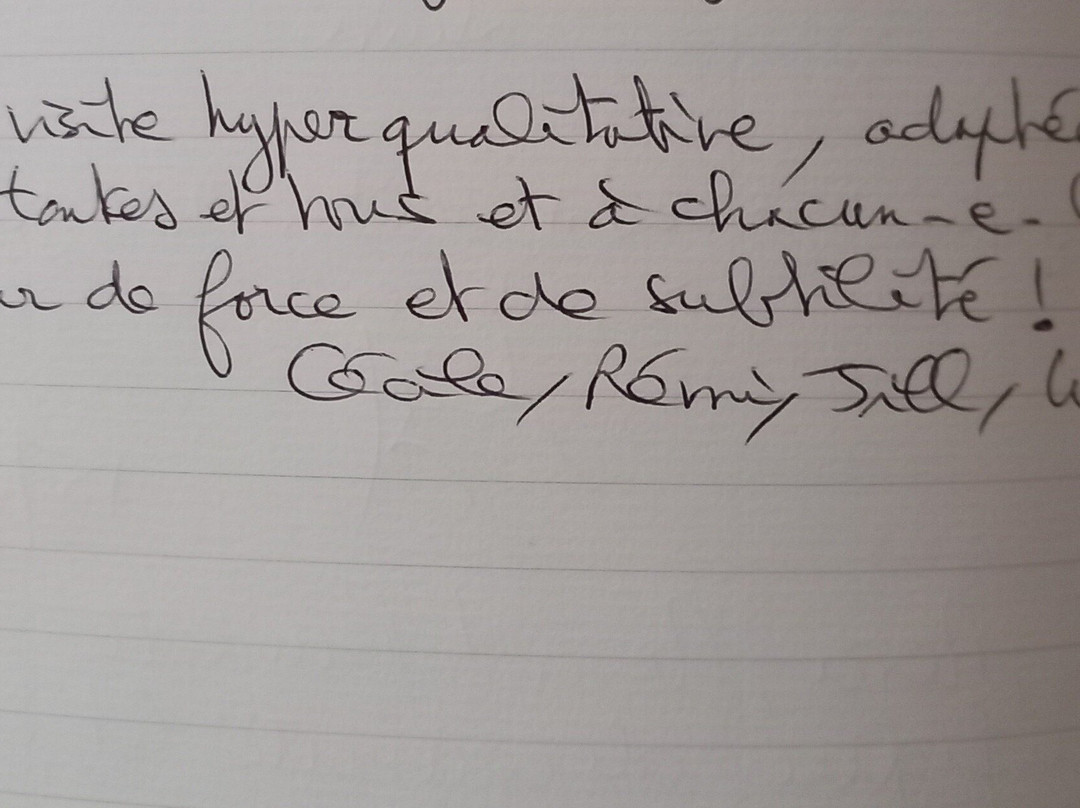 visite hyper qualitative, adapté
toutes et tous et à chacun-e.
de force et de subtilité !
Cécile, Rémi, Jill,